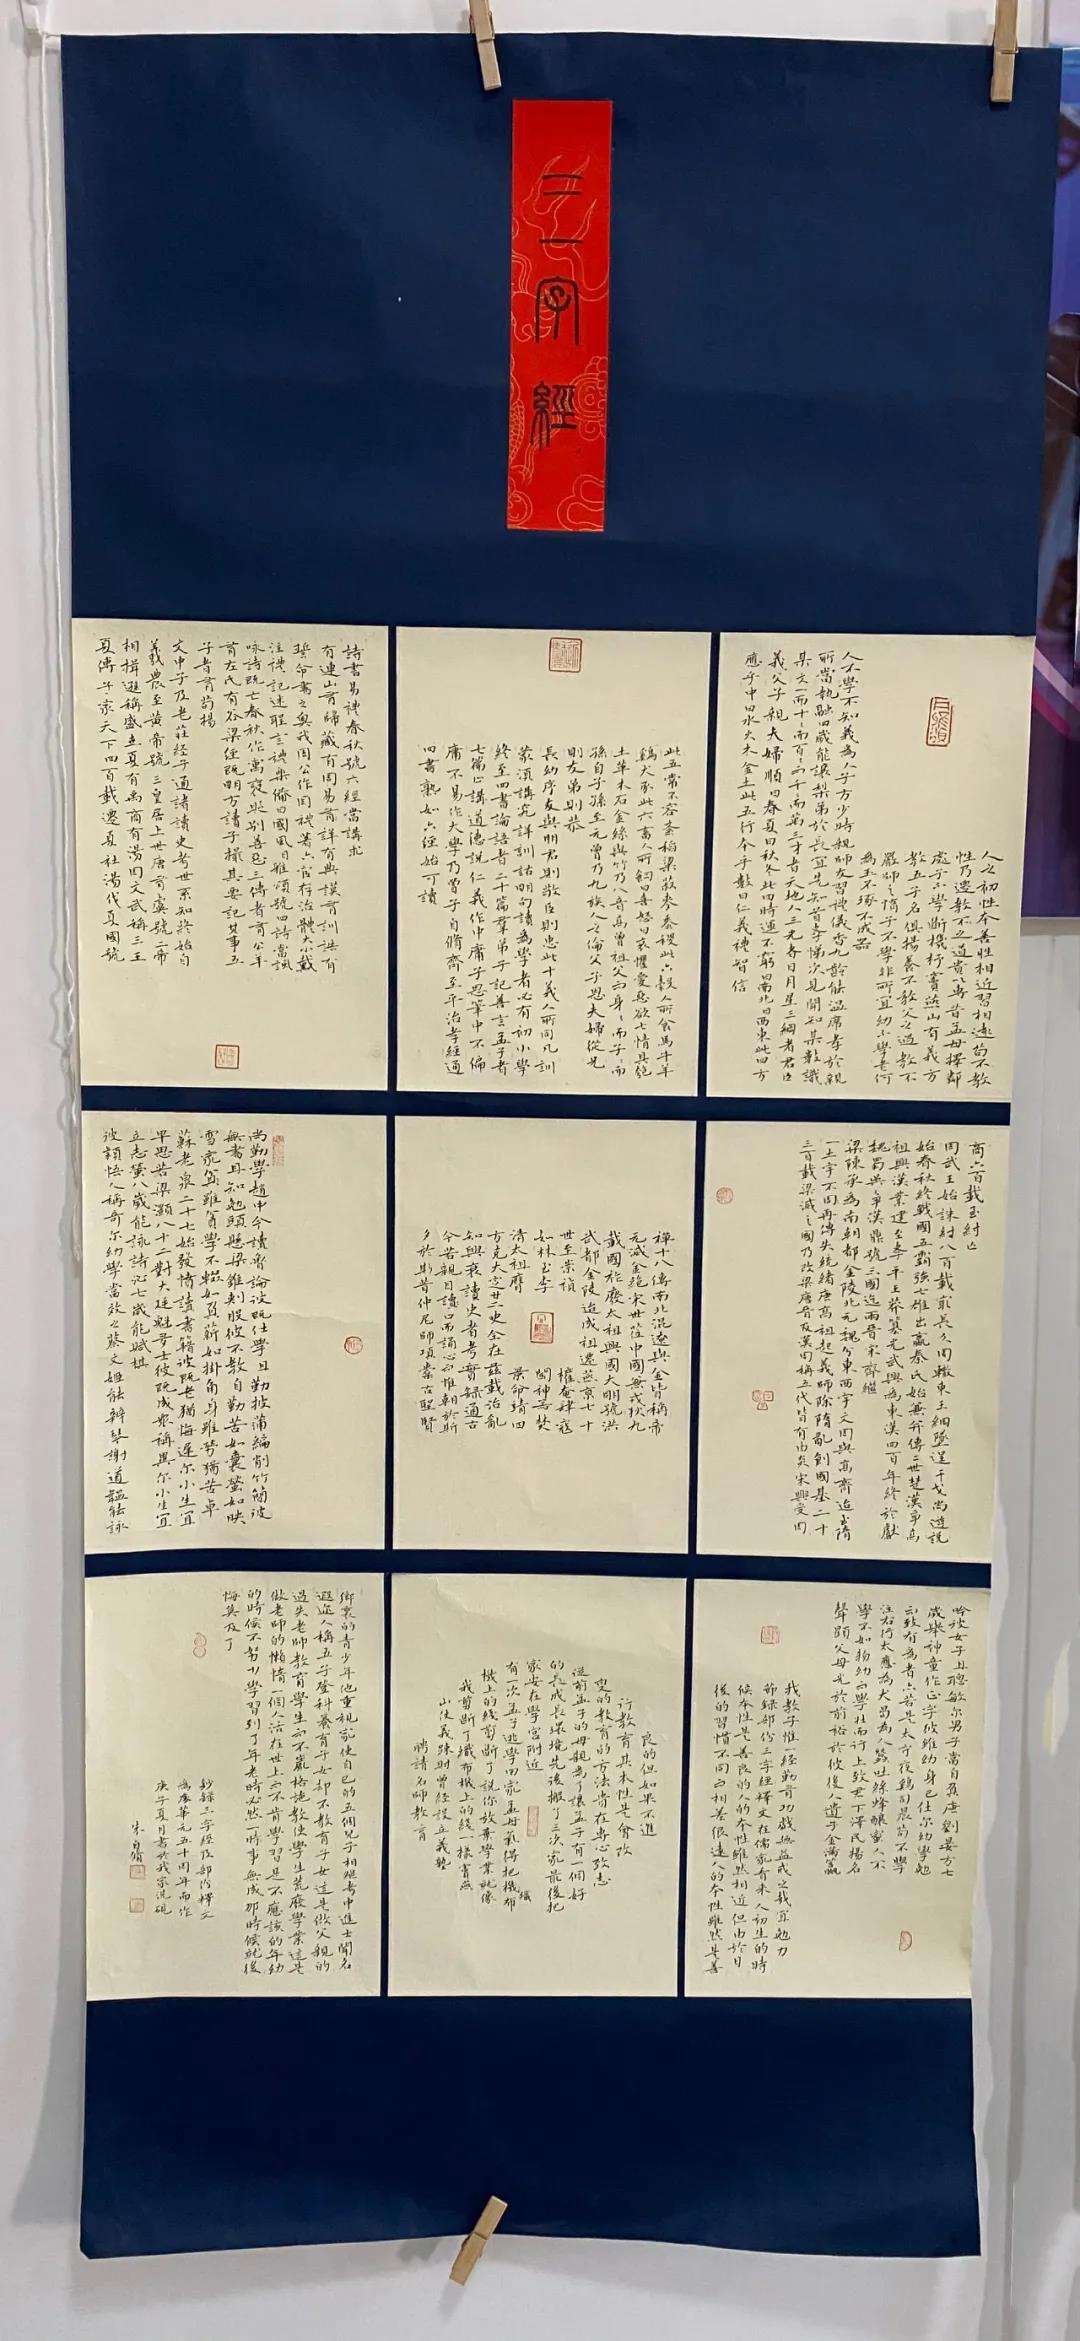 三字經
人之初性本善性相近習相遠苟不教
性乃遷教之道貴以專昔孟母擇鄰
處子不學斷機杼竇燕山有義方
教五子名俱揚養不教父之過教不
嚴師之惰子不學非所宜幼不學老何
為玉不琢不成器
人不學不知義為人子方少時親師友習禮儀香九齡能溫席孝於親
所當執融四歲能讓梨弟於長宜先知首孝悌次見聞知某數識
某文一而十十而百百而千千而萬三才者天地人三光者日月星三綱者君臣
義父子親夫婦順曰春夏曰秋冬此四時運不窮曰南北曰西東此四方
應乎中曰水火木金土此五行本乎數曰仁義禮智信
此五常不容紊稻粱菽麥黍稷此六穀人所食馬牛羊
雞犬豕此六畜人所飼曰喜怒曰哀懼愛惡欲七情具匏
土革木石金絲與竹乃八音高曾祖父而身身而子子而
孫自子孫至元曾乃九族人之倫父子恩夫婦從兄
則友弟則恭
長幼序友與朋君則敬臣則忠此十義人所同凡訓
蒙須講究詳訓詁明句讀為學者必有初小學
終至四書論語者二十篇羣弟子記善言孟子者
七篇止講道德說仁義作中庸子思筆中不偏
庸不易作大學乃曾子自脩齊至平治孝經通
四書熟如六經始可讀
詩書易禮春秋號六經當講求
有連山有歸藏有周易詳有典謨有訓誥有
誓命書之奧我周公作周禮著六官存治體大小戴
注禮記述聖言禮樂備曰國風曰雅頌號四詩當諷
詠詩既亡春秋作寓褒貶別善惡三傳者有公羊
有左氏有谷梁經既明方讀子撮其要記其事五
子者有荀揚
文中子及老莊經子通讀諸史考世系知終始自
羲農至黃帝號三皇居上世唐有虞號二帝
相揖遜稱盛世夏有禹商有湯周文武稱三王
夏傳子家天下四百載遷夏社湯伐夏國號
商六百載至紂亡
周武王始誅紂八百載最長久周轍東王綱墜逞干戈尚遊說
始春秋終戰國五霸強七雄出嬴秦氏始兼并傳二世楚漢爭高
祖興漢業建至孝平王莽篡光武興為東漢四百年終於獻
魏蜀吳爭漢鼎號三國迄兩晉宋齊繼
梁陳承為南朝都金陵北元魏分東西宇文周與高齊迨至隋
一土宇不再傳失統緒唐高祖起義師除隋亂創國基二十
三百載梁滅之國乃改梁唐晉及漢周稱五代皆有由炎宋興受周
禪十八傳南北混遼與金皆稱帝
元滅金絕宋世蒞中國兼戎狄九
載國祚廢太祖興國大明號洪
武都金陵迨成祖遷燕京七十
世至崇禎權奄肆寇
如林至李闖神器焚
清太祖膺景命靖四
方克大定廿二史全在茲載治亂
知興衰讀史者考實錄通古
今若親目讀口而誦心而惟朝於斯
夕於斯昔仲尼師項橐古聖賢
尚勤學趙中令讀魯論彼既仕學且勤披蒲編削竹簡彼
無書且知勉頭懸梁錐刺股彼不教自勤苦如囊螢如映
雪家雖貧學不輟如負薪如掛角身雖勞猶苦卓
蘇老泉二十七始發憤讀書籍彼既老猶悔遲尔小生宜
早思若梁灝八十二對大廷魁多士彼既成眾稱異尔小生宜
立志瑩八歲能詠詩泌七歲能賦棋
彼穎悟人稱奇尔幼學當效之蔡文姬能辨琴謝道韞能詠
吟彼女子且聰敏尔男子當自警唐劉晏方七
歲舉神童作正字彼雖幼身已仕尔幼學勉
而致有為者亦若是犬守夜雞司晨苟不學
曷為人蠶吐絲蜂釀蜜人不
學不如物幼而學壯而行上致君下澤民揚名
聲顯父母光於前裕於後人遺子金滿籯
我教子惟一經勤有功戲無益戒之哉宜勉力
節錄部份三字經釋文在儒家看來人初生的時
候本性是善良的人的本性雖然相近但由於日
後的習慣不同而相差很遠人的本性雖然是善
良的但如果不進
行教育其本性是會改
變的教育的方法貴在專心致志
從前孟子的母親為了讓孟子有一個好
的長成長環境先後搬了三次家最後把
家安在學宮附近
有一次孟子逃學回家孟母氣得把織布
機上的線剪斷了說你放棄學業就像
我剪斷了織布機上的線一樣竇燕
山仗義疎財曾經設立義塾
聘請名師教育
鄉裏的青少年他重視家使自己的五個兒子相繼考中進士聞名
遐迩人稱五子登科養育子女卻不教育子女這是做父親的
過失老師教育學生而不嚴格施教使學生荒廢學業這是
做老師的懶惰一個人活在世上而不肯學習是不應該的年幼
的時候不努力學習到了年老時必然一時事無成那時候就後
悔莫及了
鈔錄三字經及部份釋文
為慶華元五十周年而作
庚子夏月書於我宗洗硯